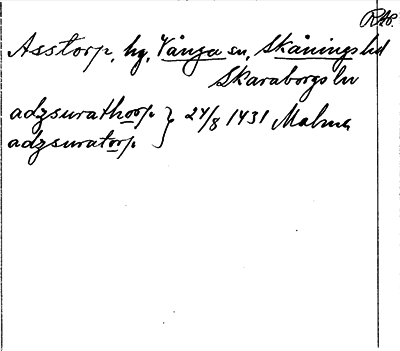 RAP.
Asstorp, hg, Vånga sn, Skånings hd
Skaraborgs ln
adzsurathorp } 24/8 1431 Malma
adzsuratorp